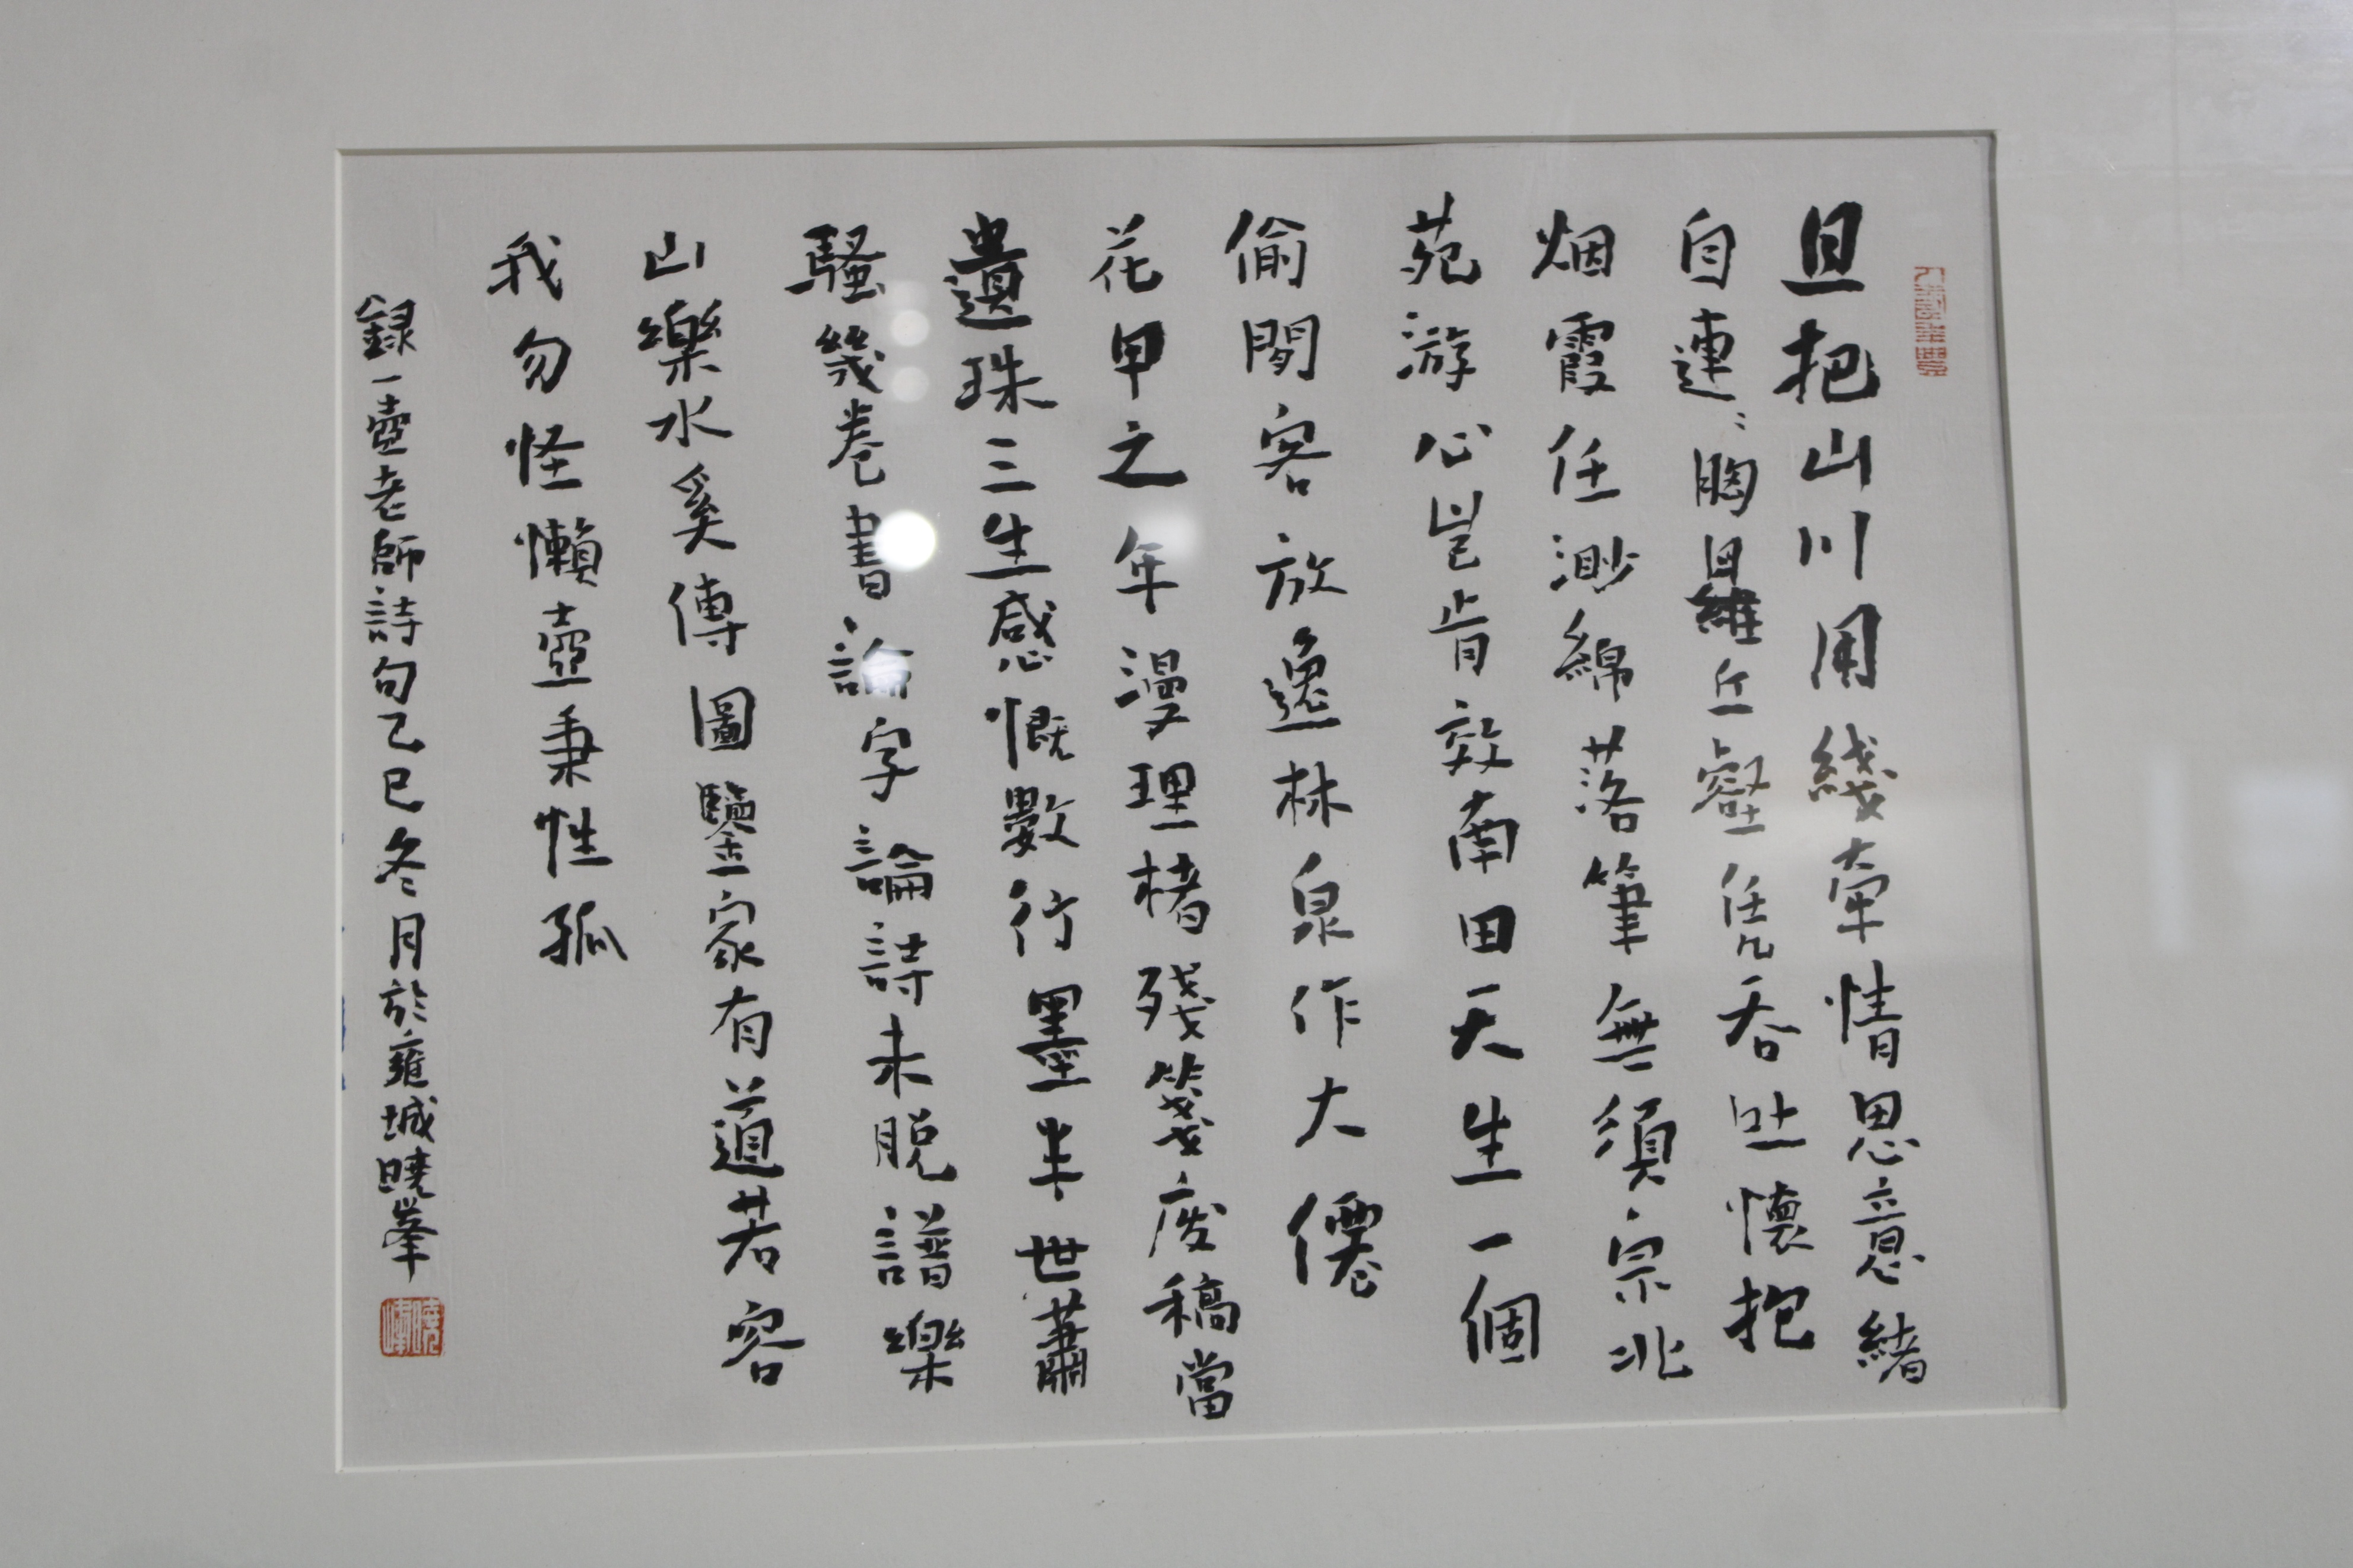 且把山川用綫牽情思意緒
自連〻胸羅丘壑任凭吞吐懷抱
烟霞任渺綿落筆無須宗北
苑游心豈肯效南田天生一個
偷閒客放逸林泉作大僊
花甲之年漫理楮殘箋廢稿當
遺珠三生感慨數行墨半世蕭
騷幾卷書論字論詩未脱譜樂
山樂水奚傳圖鑒家有道若容
我勿怪懶壺秉性孤
録一壺老師詩句乙巳冬月於雍城曉峯